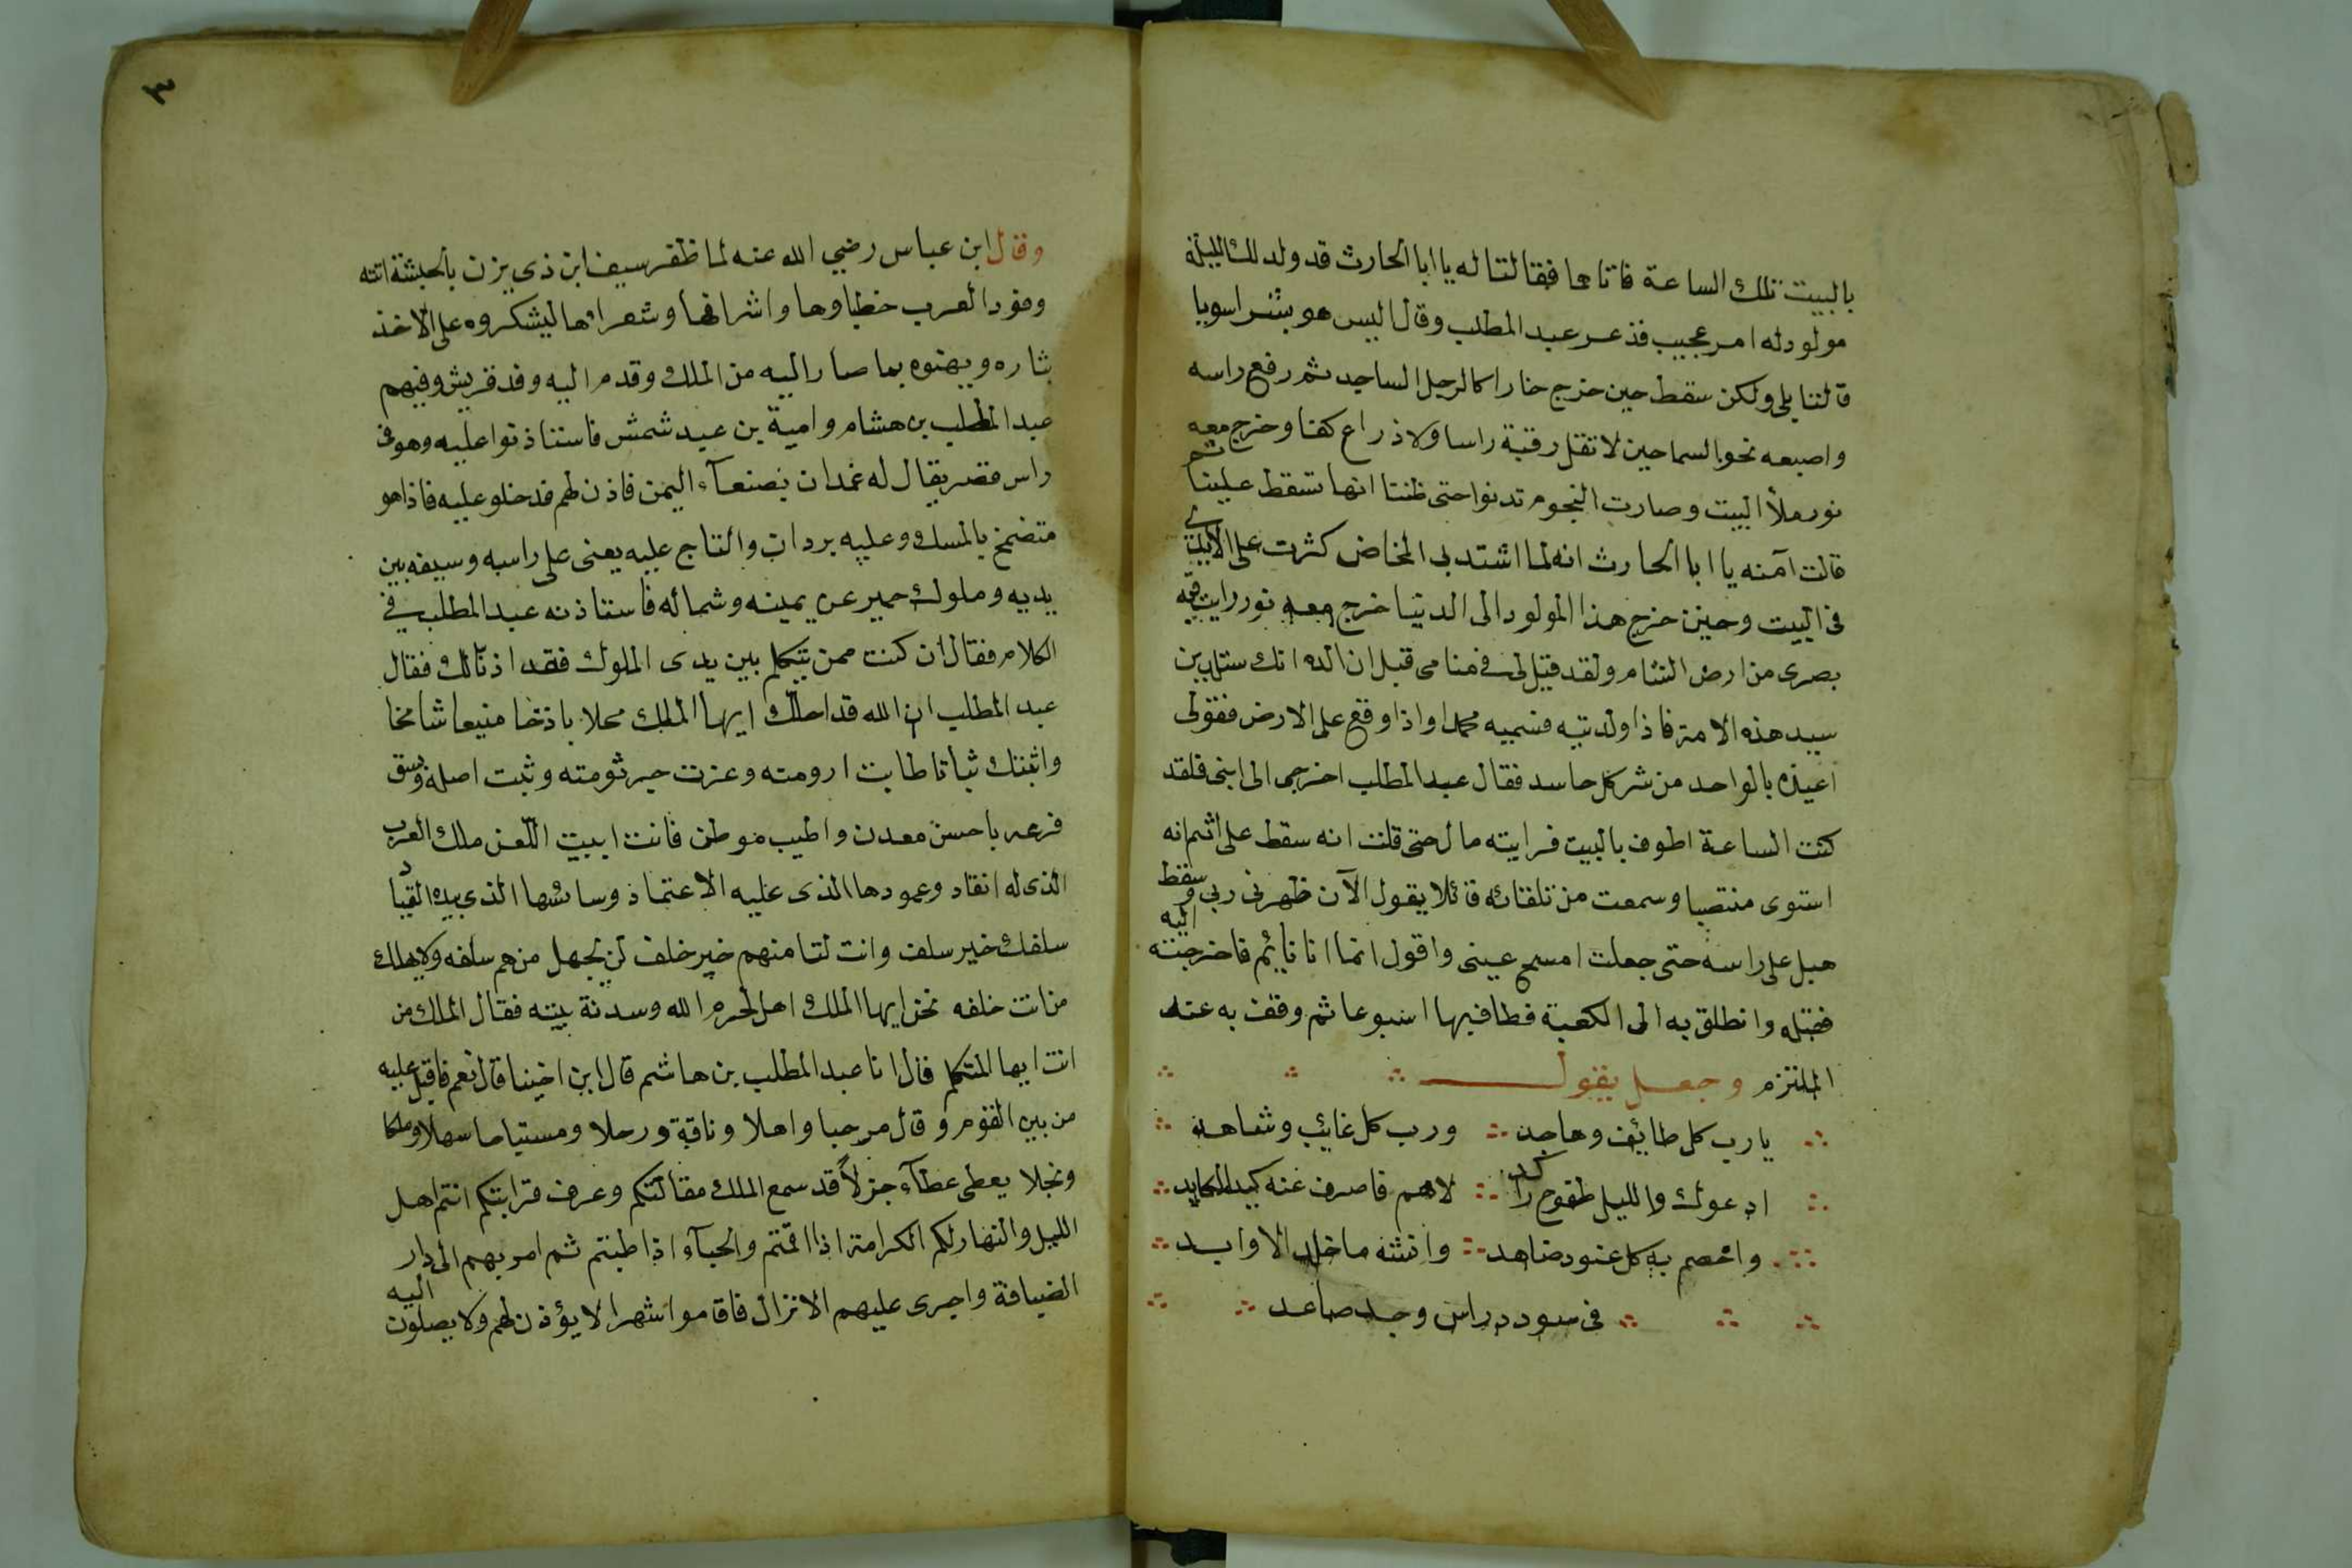 بالبيت تلك الساعة فاتاها فقالتا له يا ابا الحارث قد ولد لك الليلة
مولود له امر عجيب فذعر عبد المطلب وقال اليس هو بشرا سويا
قالتا بلى ولكن سقط حين خرج خارا كالرجل الساجد ثم رفع راسه
واصبعه نحو السما حين لا تقل رقبة راسا ولا ذراع كفا وخرج معه
نور ملأ البيت وصارت النجوم تدنوا حتى ظننا انها تسقط علينا ثم
قالت آمنه يا ابا الحارث انه لما اشتد بي المخاض كثرت على الايدي
في البيت وحين خرج هذا المولود الى الدنيا خرج معه نور رايت فيه
بصرى من ارض الشام ولقد قيل لي في منامي قبل ان الده انك ستلدين
سيد هذه الامة فاذا ولدتيه فسميه محمدا واذا وقع على الارض فقولى
اعيذه بالواحد من شر كل حاسد فقال عبد المطلب اخرجى الى ابنى فلقد
كنت الساعة اطوف بالبيت فرايته مال حتى قلت انه سقط على ثم انه
استوى منتصبا وسمعت من تلقائه قائلا يقول الآن طهرنى ربي وسقط
هبل على راسه حتى جعلت امسح عينى واقول انما انا نايم فاخرجته اليه
فقبله وانطلق به الى الكعبة فطاف بها اسبوعا ثم وقف به عند
الملتزم وجعل يقول
يا رب كل طايف وهاجد ورب كل غائب وشاهد
ادعوك والليل طفوح راكد لاهم فاصرف عنه كيد المكايد
واحصم به كل عنود ضاهد وانشه ما خلد الاوابد
في سودد راس وجد صاعد
٣
وقال ابن عباس رضي الله عنه لما ظفر سيف ابن ذى يزن بالحبشة اتته
وفود العرب خطباوها واشرافها وشعراها ليشكروه على الاخذ
بثاره ويهنوه بما صار اليه من الملك وقدم اليه وفد قريش وفيهم
عبد المطلب بن هشام وامية بن عبد شمش فاستاذنوا عليه وهو فى
راس قصر يقال له غمدان بصنعآء اليمن فاذن لهم فدخلو عليه فاذا هو
متضمخ بالمسك وعليه بردان والتاج عليه يعنى على راسه وسيفه بين
يديه وملوك حمير عن يمينه وشماله فاستاذنه عبد المطلب في
الكلام فقال ان كنت ممن يتكلم بين يدى الملوك فقد اذنا لك فقال
عبد المطلب ان الله قد احلك ايها الملك محلا باذخا منيعا شامخا
واثبتك ثباتا طابت ارومته وعزت جرثومته وثبت اصله وبسق
فرعه باحسن معدن واطيب موطن فانت ابيت اللعن ملك العرب
الذى له انقاد وعمودها الذى عليه الاعتماد وسائسها الذى بيده القياد
سلفك خير سلف وانت لنا منهم خير خلف لن يجهل من هم سلفه ولا يهلك
من انت خلفه نحن ايها الملك اهل حرم الله وسدنة بيته فقال الملك من
انت ايها المتكلم قال انا عبد المطلب بن هاشم قال ابن اخينا قال نعم فاقبل عليه
من بين القوم وقال مرحبا واهلا وناقة ورحلا ومستياحا سهلا وملكا
ونجلا يعطى عطآء جزلاً قد سمع الملك مقالتكم وعرف قرابتكم انتم اهل
الليل والنهار لكم الكرامة اذا اقمتم والحبآء اذا ظعنتم ثم امر بهم الى دار
الضيافة واجرى عليهم الانزال فاقاموا شهرا لا يؤذن لهم ولا يصلون اليه